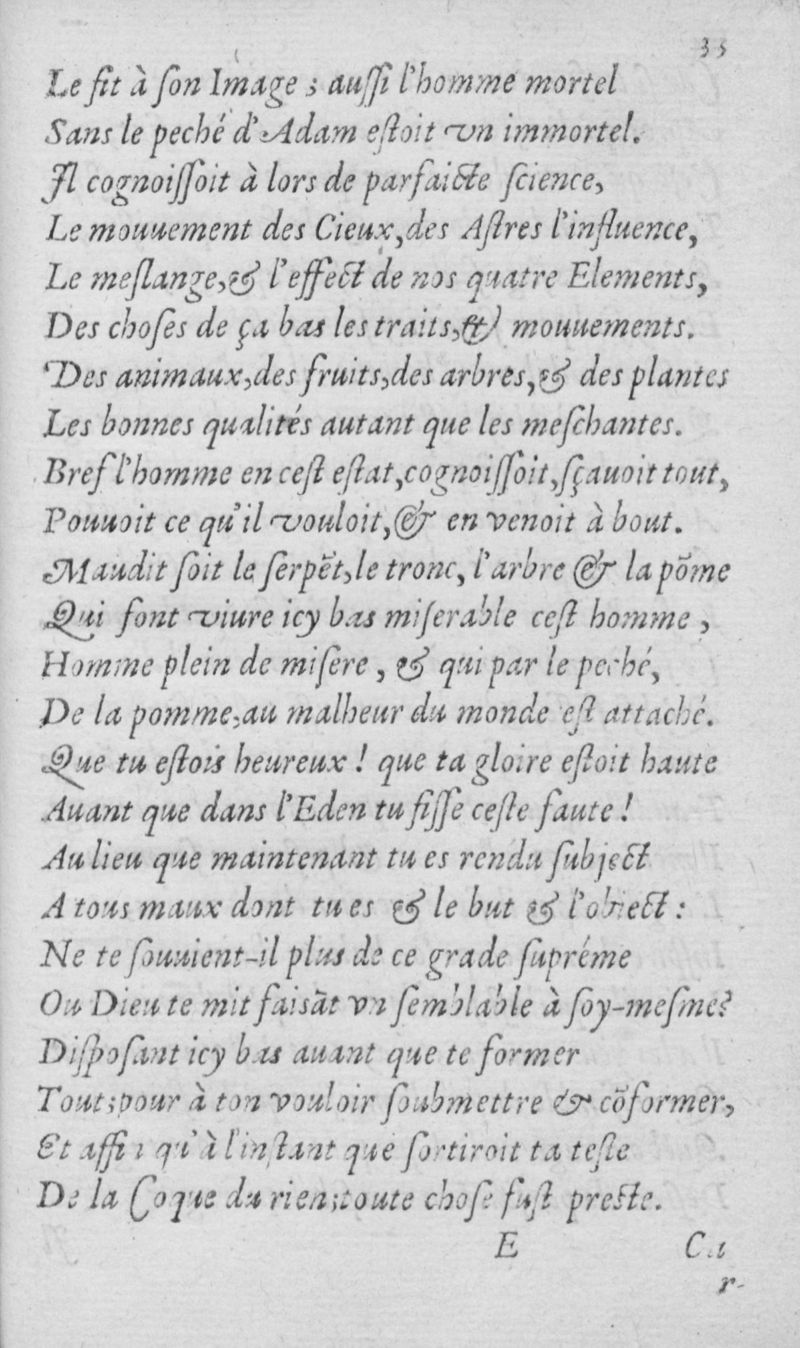 33
Le fit à ſon Image ; auſſi l'homme mortel
Sans le peché d'Adam eſtoit vn immortel.
Il cognoiſſoit à lors de parfaicte ſcience,
Le mouuement des Cieux,des Aſtres l'influence,
Le meſlange,& l'effect de nos quatre Elements,
Des choſes de ça bas les traits,& mouuements.
Des animaux,des fruits,des arbres,& des plantes
Les bonnes qualités autant que les meſchantes.
Bref l'homme en ceſt eſtat,cognoiſſoit,ſçauoit tout,
Pouuoit ce qu'il vouloit,& en venoit à bout.
Maudit ſoit le ſerpēt,le tronc, l'arbre & la pōme
Qui font viure icy bas miſerable ceſt homme ,
Homme plein de miſere , & qui par le peché,
De la pomme,au malheur du monde eſt attaché.
Que tu eſtois heureux ! que ta gloire eſtoit haute
Auant que dans l'Eden tu fiſſe ceſte faute !
Au lieu que maintenant tu es rendu ſubject
A tous maux dont tu es & le but & l'obiect :
Ne te ſouuient-il plus de ce grade ſupréme
Ou Dieu te mit faisāt vn ſemblable à ſoy-meſme?
Diſpoſant icy bas auant que te former
Tout;pour à ton vouloir ſoubmettre & cōformer,
Et affin qu'à l'inſtant que ſortiroit ta teſte
De la Coque du rien;toute choſe fuſt preſte.
E Ca
r-